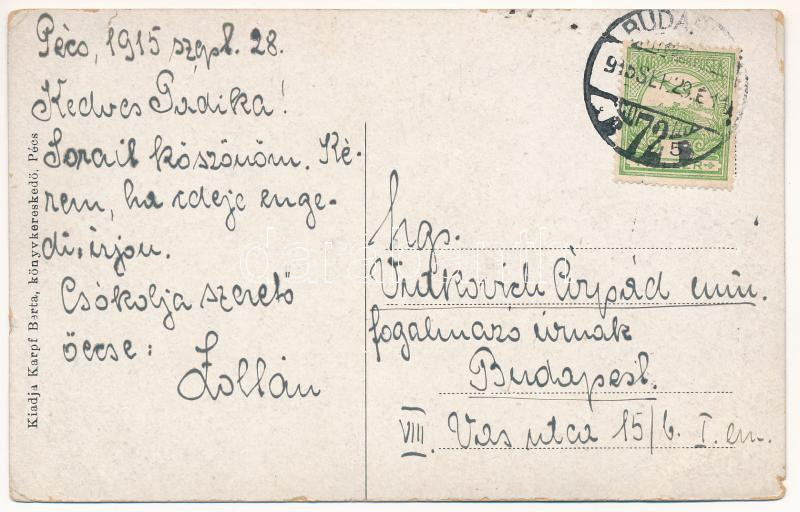 Pécs, 1915 szept. 28.
Kedves Pudika!
Sorait köszönöm. Ké-
rem, ha ideje enge-
di, írjon.
Csókolja szerető
öccse:
Zoltán
Kiadja Karpf Berta, könyvkereskedő, Pécs
BUDAP
72
Ngs.
Vutkovich Árpád min.
fogalmazó úrnak
Budapest.
VIII. Vas utca 15/b. I. em.